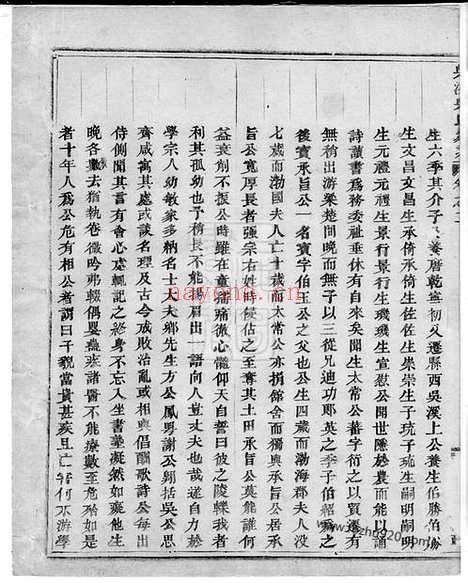 生六季其介子人養曆乾寧初又遷縣西吳溪上公養生伯勝伯脩
生文昌文昌生承倚承倚生佐佐生崇崇生子琉子琉生嗣明嗣明
生元禮元禮生景行景行生璣璣生宣慰公開世隱於農而能以誦
詩讀書爲務委祉垂休有自來矣開生太常公蕃字衍之以貲遷有
無稍出游梁楚間晚而無子以三從兄迪功耶英之季子伯紹爲之
後實承旨公一名寳字伯玉公之父也公生四歲而渤海郡夫人没
七歲而渤國夫人亡十歲而太常公亦捐館舍而獨與承旨公居承
旨公寛厚長者強宗右姓時侵估之至奪其土田承旨公莫能誰何
益衰削不振公時雖在童稚痛徹心髓仰天自誓曰彼之陵轢我者
利其孤幼也予稍長不能揚眉出一語向人豈丈夫也哉遂自力於
學宗人幼敏家多納名士大夫鄉先生方公鳳謝公翱括吳公思
齊咸寓其處或談名理及古今成敗治亂或相與倡酬歌詩公每出
侍側聞其言有會心處輒記之終身不忘入坐書藁癡然如棄他生
晚各弃去猶執卷微吟弗輟偶嬰羸疾諸醫不能療數至危殆如是
者十年人爲公危有相公者謂曰子貌當貴甚疾且亡害何不游學
nayona.cn